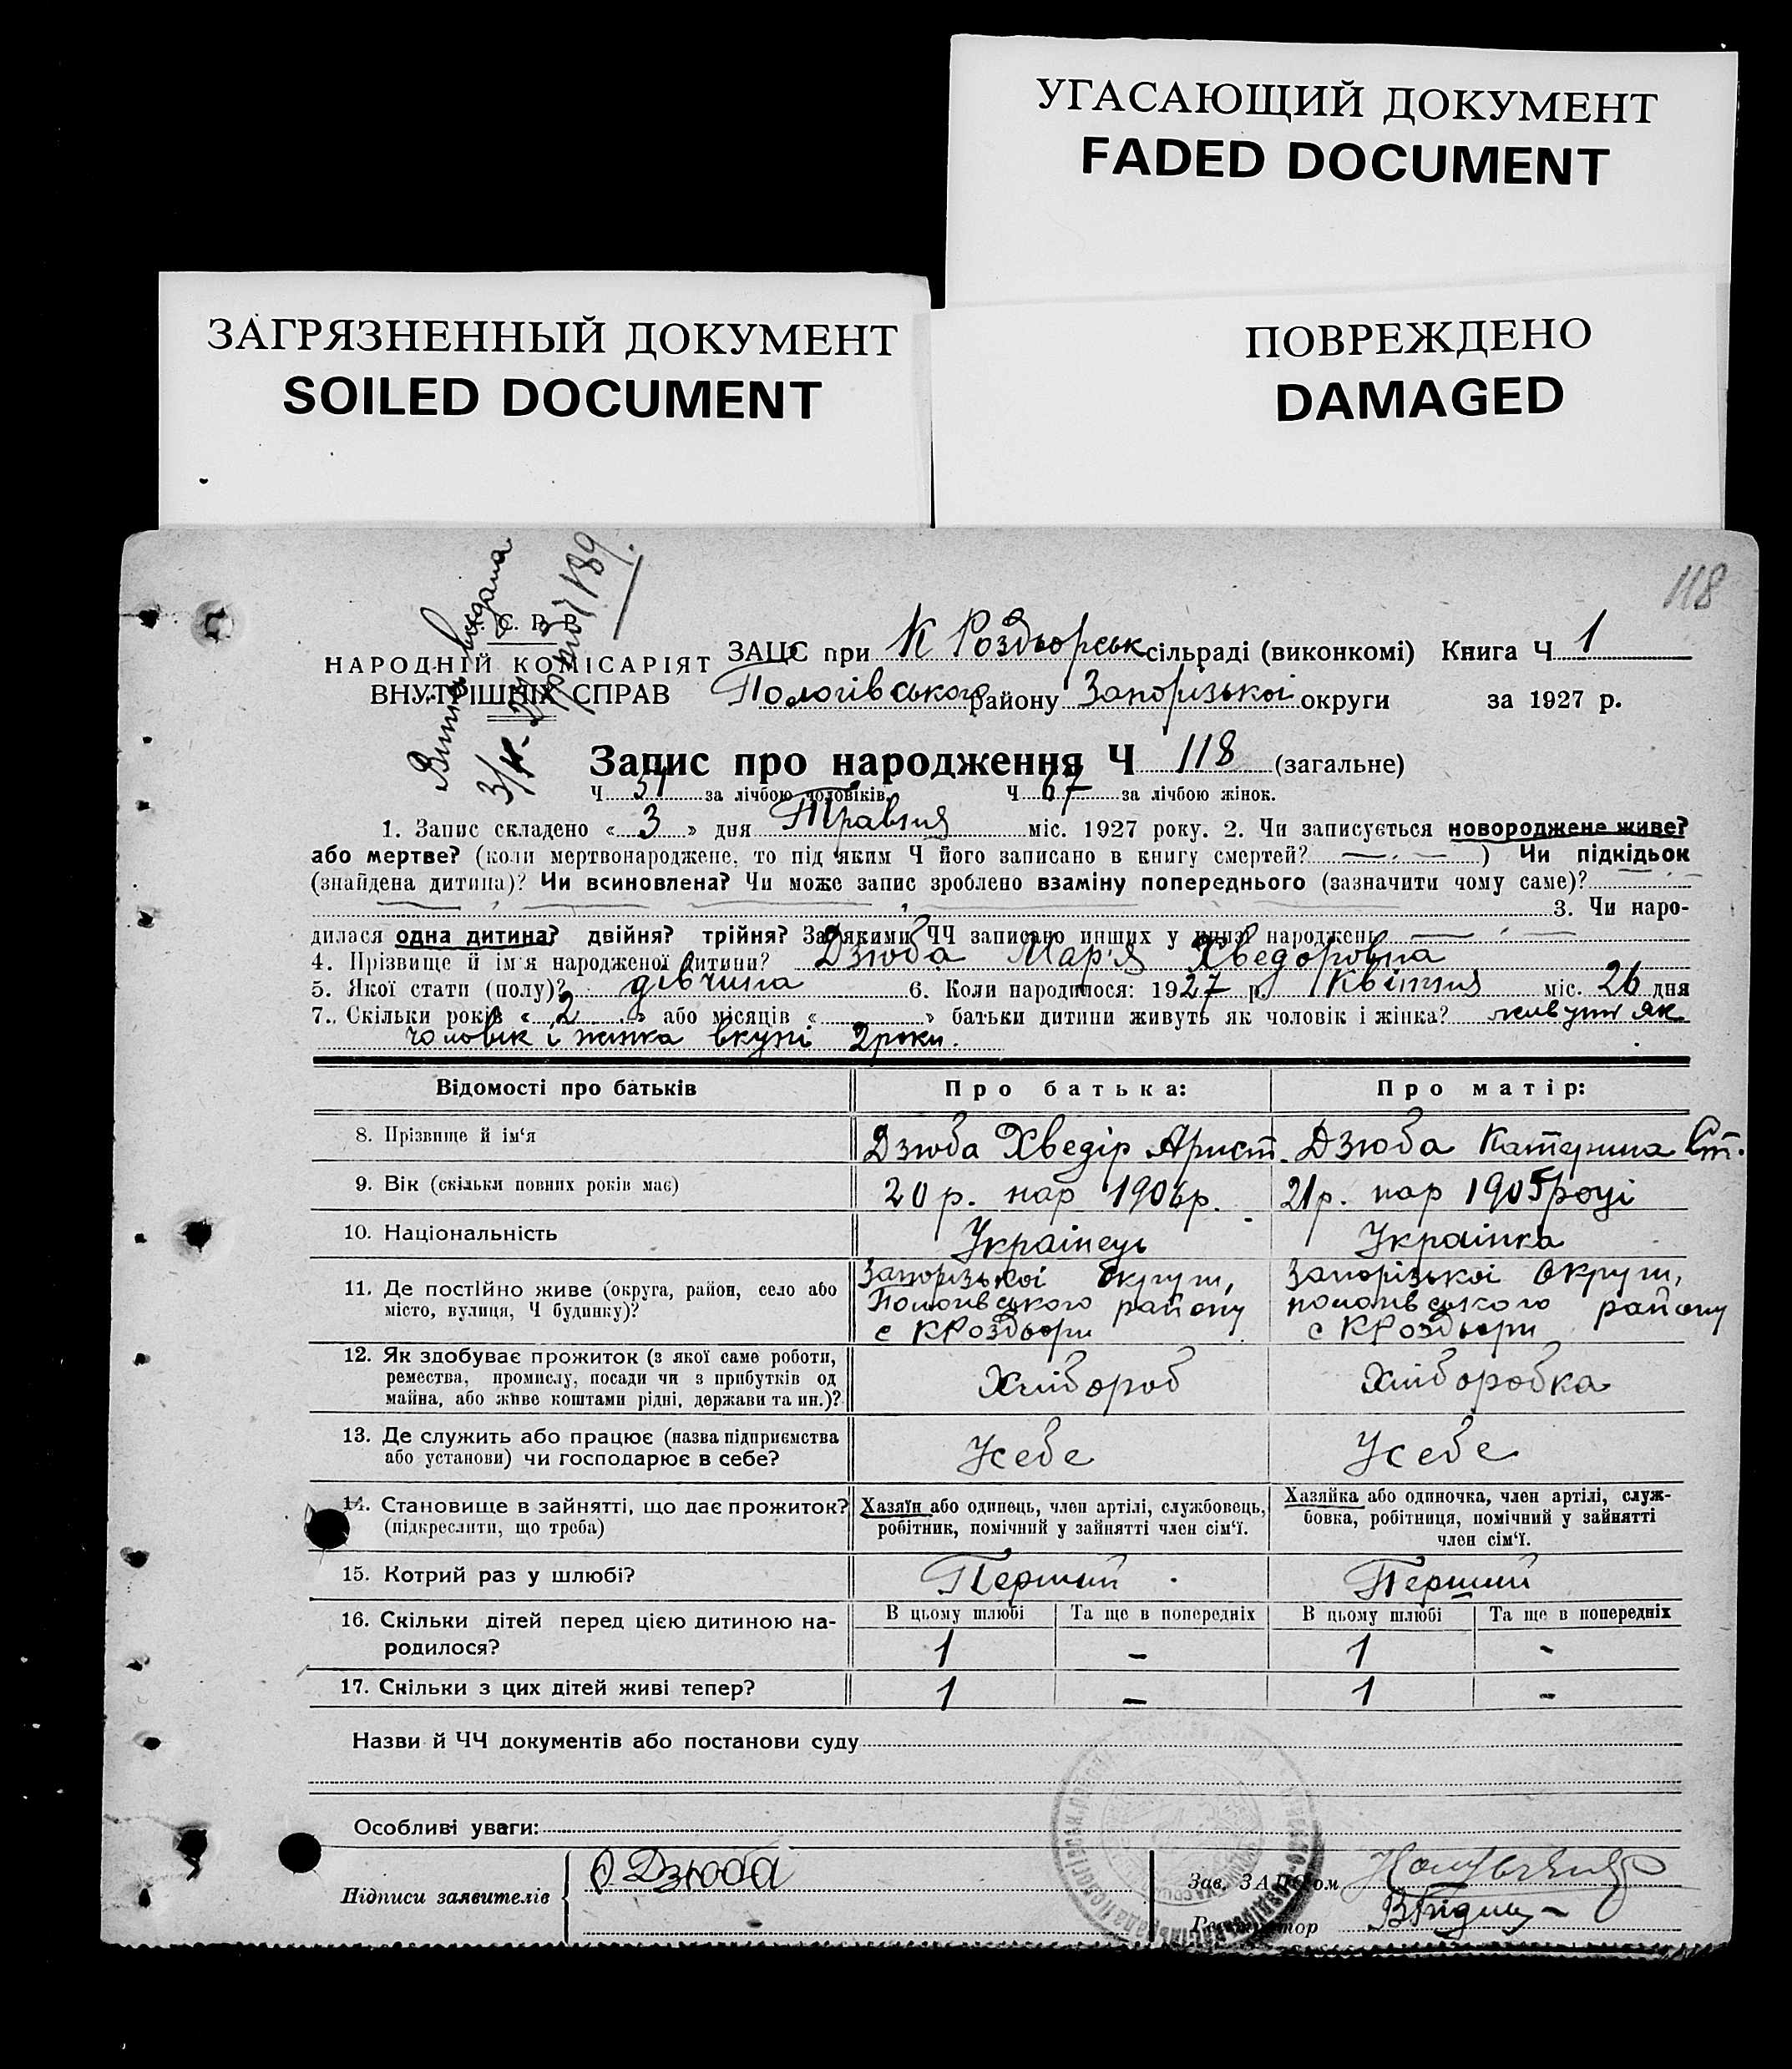 УГАСАЮЩИЙ ДОКУМЕНТ
FADED DOCUMENT
ЗАГРЯЗНЕННЫЙ ДОКУМЕНТ
SOILED DOCUMENT
ПОВРЕЖДЕНО
DAMAGED
118
С. Р. Р.
НАРОДНІЙ КОМІСАРІЯТ
ВНУТРІШНІХ СПРАВ
Витяг видана
ЗАЦС при К Роздьорськ сільраді (виконкомі) Книга Ч 1
Пологівського району Запорізької округи за 1927 р.
Запис про народження Ч 118 (загальне)
Ч 51 за лічбою чоловіків. Ч 67 за лічбою жінок.
1. Запис складено « 3 » дня Травня міс. 1927 року. 2. Чи записується новороджене живе?
або мертве? (коли мертвонароджене, то під яким Ч його записано в книгу смертей? ) Чи підкідьок
(знайдена дитина)? Чи всиновлена? Чи може запис зроблено взаміну попереднього (зазначити чому саме)?
3. Чи наро-
дилася одна дитина? двійня? трійня? За якими ЧЧ записано инших у книзі народжень
4. Прізвище й ім'я народженої дитини? Дзюба Мар'я Хведоровна
5. Якої стати (полу)? дівчина 6. Коли народилося: 1927 р. Квітня міс. 26 дня
7. Скільки років « 2 » або місяців « » батьки дитини живуть як чоловік і жінка? живуть як
чоловік і жінка вкупі 2 роки.
Відомості про батьків Про батька: Про матір:
8. Прізвище й ім'я Дзюба Хведір Арист. Дзюба Катерина Ст.
9. Вік (скільки повних років має) 20 р. нар 1906 р. 21 р. нар 1905 році
10. Національність Українець Українка
11. Де постійно живе (округа, район, село або
місто, вулиця, Ч будинку)?
Запорізької округи, Запорізької округи,
Пологівського району Пологівського району
с КРоздьори с КРоздьори
12. Як здобуває прожиток (з якої саме роботи,
ремества, промислу, посади чи з прибутків од
майна, або живе коштами рідні, держави та ин.)?
Хлібороб Хліборобка
13. Де служить або працює (назва підприємства
або установи) чи господарює в себе?
У себе У себе
14. Становище в зайнятті, що дає прожиток?
(підкреслити, що треба)
Хазяїн або одинець, член артілі, службовець,
робітник, помічний у зайнятті член сім'ї.
Хазяйка або одиночка, член артілі, служ-
бовка, робітниця, помічний у зайнятті
член сім'ї.
15. Котрий раз у шлюбі? Перший Перший
16. Скільки дітей перед цією дитиною на-
родилося?
В цьому шлюбі Та ще в попередніх В цьому шлюбі Та ще в попередніх
1 - 1 -
17. Скільки з цих дітей живі тепер? 1 - 1 -
Назви й ЧЧ документів або постанови суду
Особливі уваги:
Підписи заявителів Дзюба
Зав. ЗАЦСом
Реєстратор